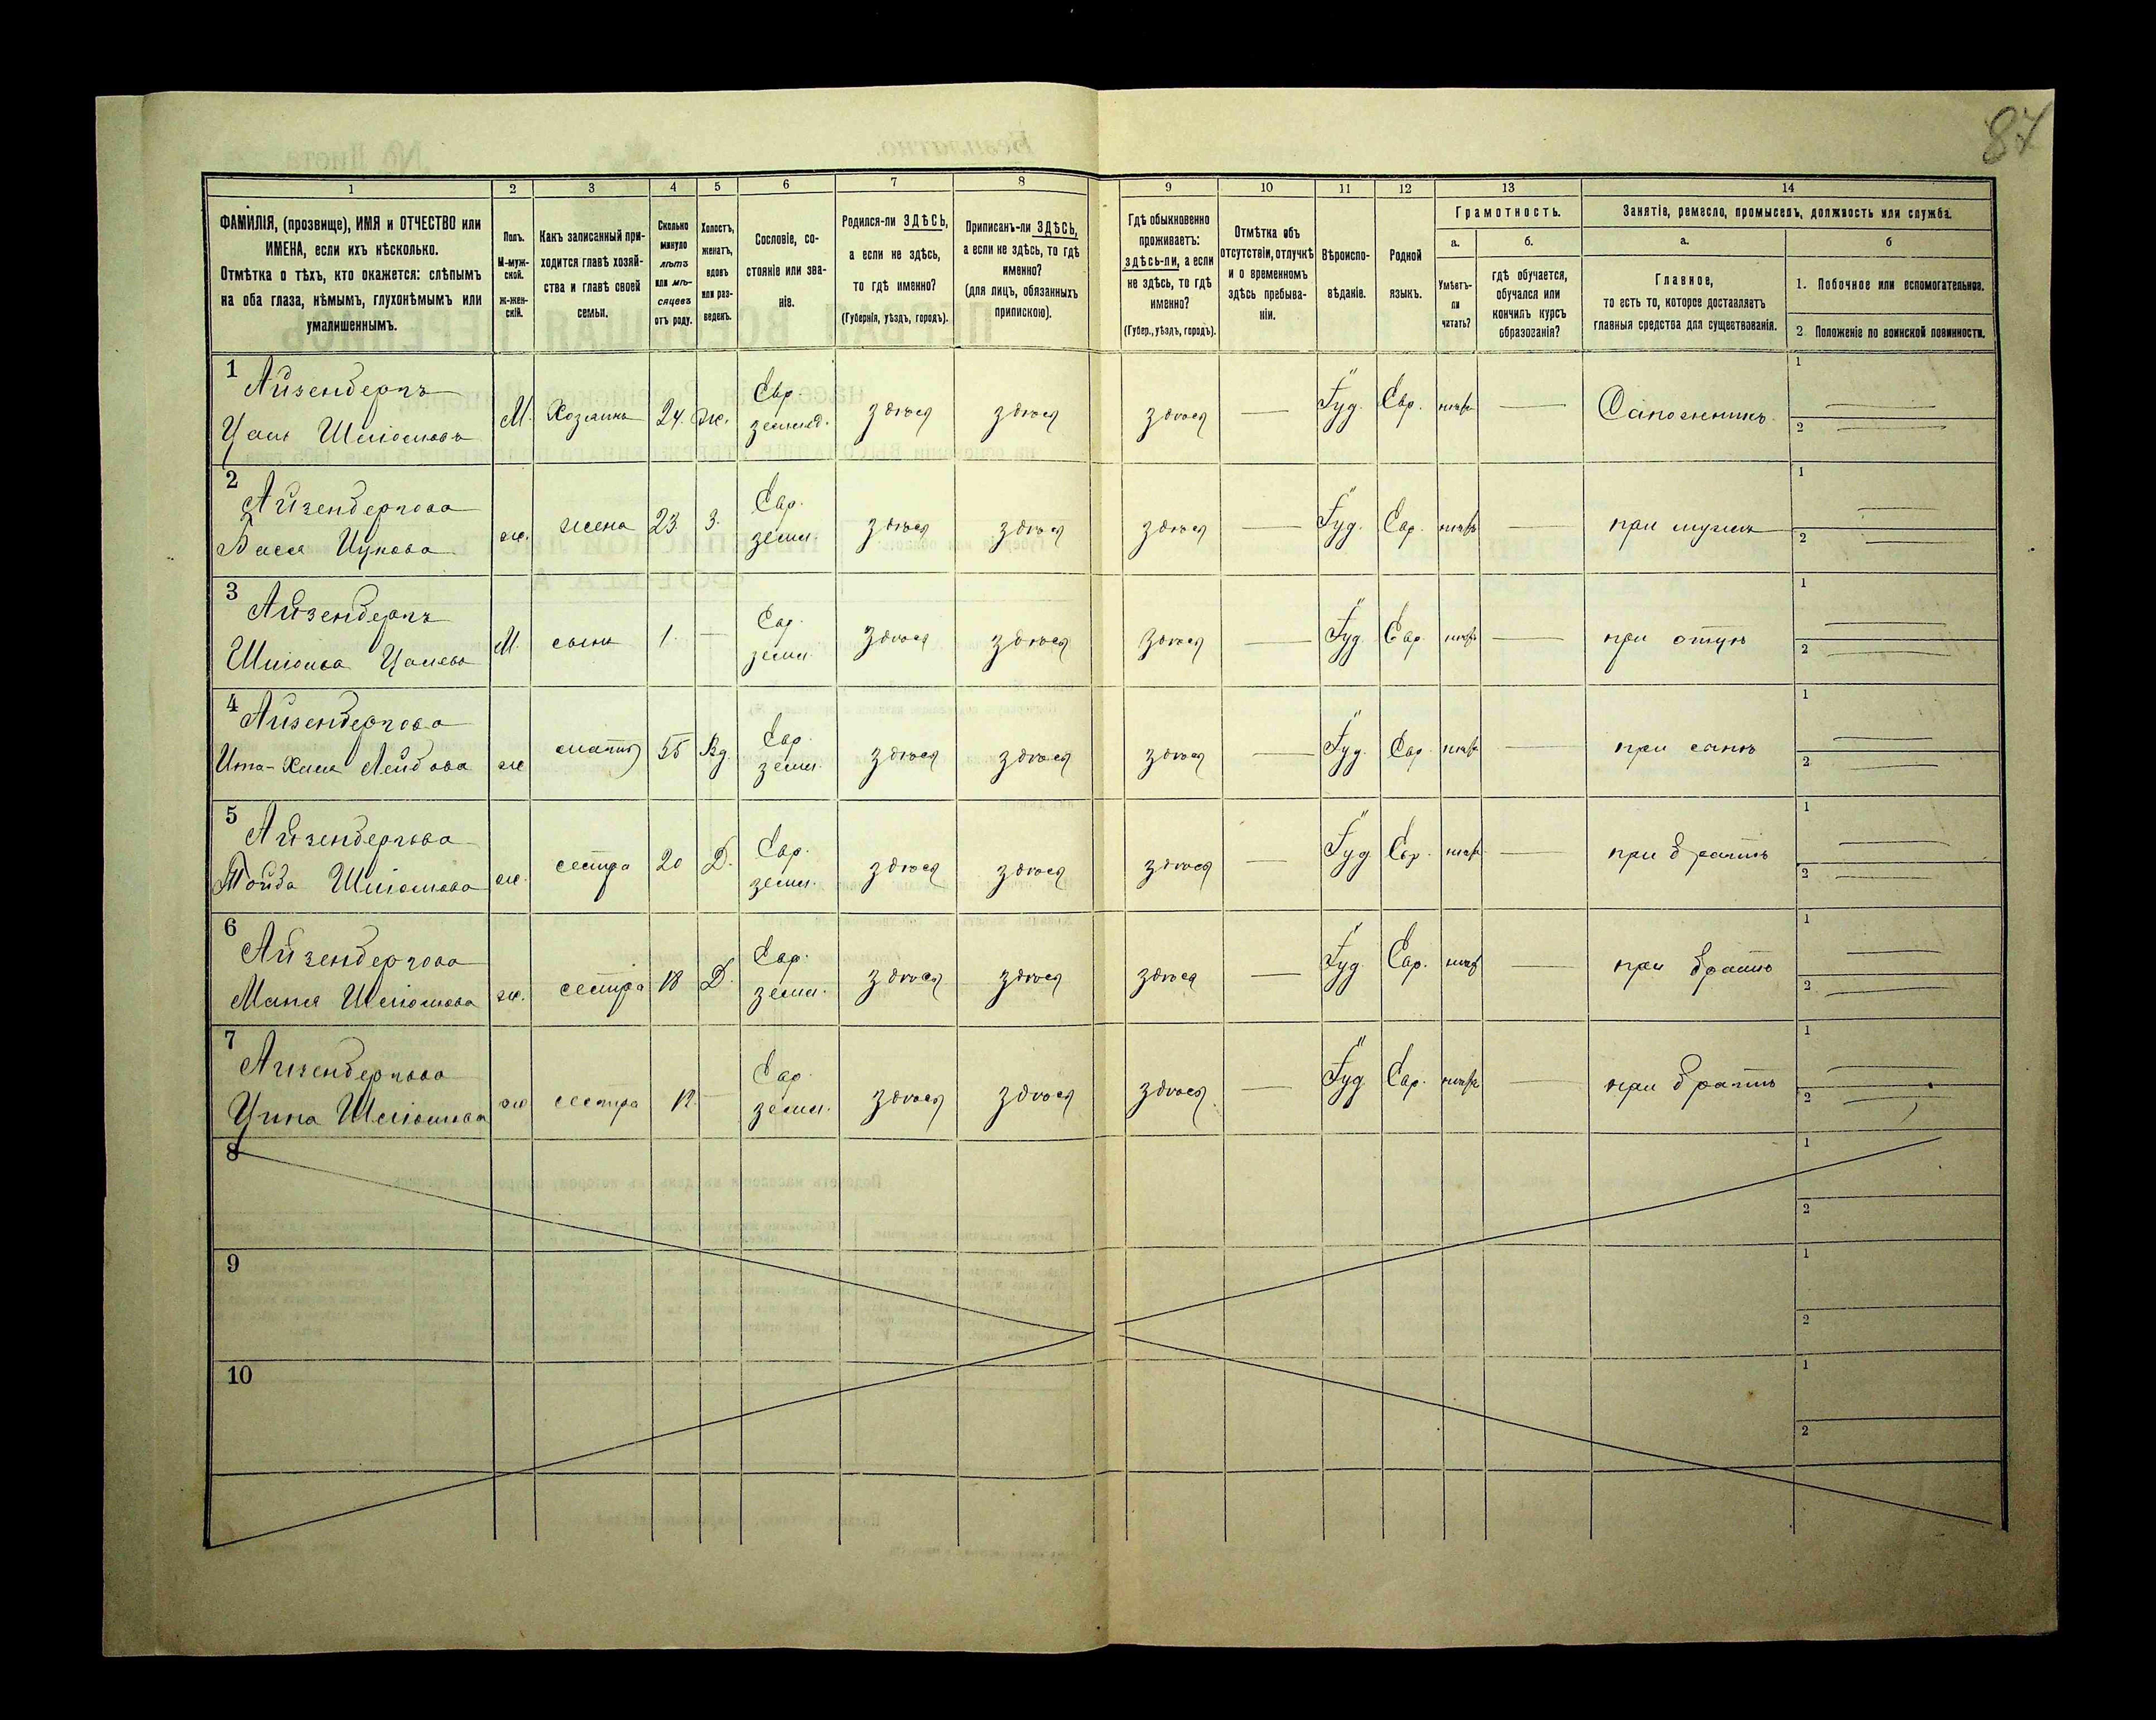 87
1 2 3 4 5 6 7 8 9 10 11 12 13 14
ФАМИЛІЯ, (прозвище), ИМЯ и ОТЧЕСТВО или
ИМЕНА, если ихъ нѣсколько.
Отмѣтка о тѣхъ, кто окажется: слѣпымъ
на оба глаза, нѣмымъ, глухонѣмымъ или
умалишеннымъ.
Полъ.
М-муж-
ской.
Ж-жен-
скій.
Какъ записанный при-
ходится главѣ хозяй-
ства и главѣ своей
семьи.
Сколько
минуло
лѣтъ
или мѣ-
сяцевъ
отъ роду.
Холостъ,
женатъ,
вдовъ
или раз-
веденъ.
Сословіе, со-
стояніе или зва-
ніе.
Родился-ли ЗДѢСЬ,
а если не здѣсь,
то гдѣ именно?
(Губернія, уѣздъ, городъ).
Приписанъ-ли ЗДѢСЬ,
а если не здѣсь, то гдѣ
именно?
(для лицъ, обязанныхъ
припискою).
Гдѣ обыкновенно
проживаетъ:
здѣсь-ли, а если
не здѣсь, то гдѣ
именно?
(Губер., уѣздъ, городъ).
Отмѣтка объ
отсутствіи, отлучкѣ
и о временномъ
здѣсь пребыва-
ніи.
Вѣроиспо-
вѣданіе.
Родной
языкъ.
Грамотность.
а.
Умѣетъ-
ли
читать?
б.
гдѣ обучается,
обучался или
кончилъ курсъ
образованія?
Занятіе, ремесло, промыселъ, должность или служба.
а.
Главное,
то есть то, которое доставляетъ
главныя средства для существованія.
б
1. Побочное или вспомогательное.
2. Положеніе по воинской повинности.
1
Айзендергъ М. Хозяинъ 24. ж. Евр. земл. здѣсь здѣсь здѣсь — Іуд. Евр. нѣтъ — Сапожникъ 1 2
Шліомовъ
2
Айзендергова ж. жена 23 З. Евр. земл. здѣсь здѣсь здѣсь — Іуд. Евр. нѣтъ — при мужѣ 1 2
Бася Ицкова
3
Айзендергъ М. сынъ 1. — Евр. земл. здѣсь здѣсь здѣсь — Іуд. Евр. нѣтъ — при отцѣ 1 2
Шліома
4
Айзендергова ж мать 55 Вд. Евр. земл. здѣсь здѣсь здѣсь — Іуд. Евр. нѣтъ — при сынѣ 1 2
Лейбова
5
Айзендергова ж. сестра 20 Д. Евр. земл. здѣсь здѣсь здѣсь — Іуд. Евр. нѣтъ — при братѣ 1 2
Шліомова
6
Айзендергова ж. сестра 18 Д. Евр. земл. здѣсь здѣсь здѣсь — Іуд. Евр. нѣтъ — при братѣ 1 2
Маня Шліомова
7
Айзендергова ж сестра 12 — Евр. земл. здѣсь здѣсь здѣсь — Іуд. Евр. нѣтъ — при братѣ 1 2
Шліомова
8 1 2
9 1 2
10 1 2